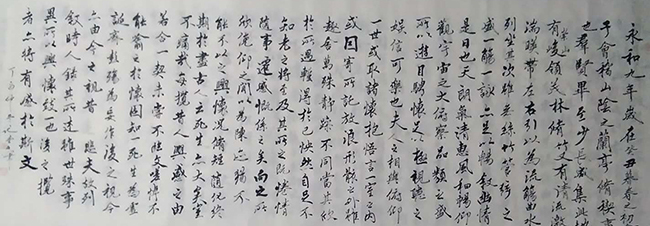 永和九年歲在癸丑暮春之初
于會稽山陰之蘭亭脩稧事
也羣賢畢至少長咸集此地
有崇山峻領茂林脩竹又有清流激
湍暎帶左右引以為流觴曲水
列坐其次雖無絲竹管絃之
盛一觴一詠亦足以暢敘幽情
是日也天朗氣清惠風和暢仰
觀宇宙之大俯察品類之盛
所以遊目騁懷足以極視聽之
娛信可樂也夫人之相與俯仰
一世或取諸懷抱悟言一室之內
或因寄所託放浪形骸之外雖
趣舍萬殊靜躁不同當其欣
於所遇暫得於己怏然自足不
知老之將至及其所之既惓情
隨事遷感慨係之矣向之所
欣俛仰之間以為陳迹猶不
能不以之興懷況脩短隨化終
期於盡古人云死生亦大矣豈
不痛哉每攬昔人興感之由
若合一契未嘗不臨文嗟悼不
能喻之於懷固知一死生為虛
誕齊彭殤為妄作後之視今
亦由今之視昔悲夫故列
敘時人錄其所述雖世殊事
異所以興懷其致一也後之攬
者亦將有感於斯文